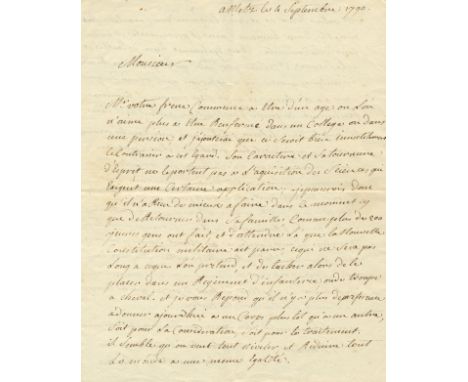 a Metz le 4 Septembre 1790.
Monsieur
Mr votre frere Commence a Etre d'un age ou L'on
n'aime plus a Etre Renfermé dans un College ou dans
une pension et j'ajouterai que ce seroit bien inutilement
le Contrarier a cet Egard. Son Caractere et Sa tournure
d'Esprit ne le portent pas a L'aquisition des Sciences qui
Exigent une Certaine application, donc
qu'il n'a Rien de mieux a faire dans ce moment cy
que de Retourner dans Sa famille Comme plus de 200
jeunes gens ont fait et d'attendre La que la Nouvelle
Constitution militaire ait parue ce qui ne Sera pas
Long a ce que L'on pretend, et de tacher alors de le
placer dans un Regiment d'infanterie ou de troupe
a cheval. et je vous Repond qu'il n'y a plus de preference
a donner aujourd'hui a un Corps plus tôt qu'a un autre,
Soit pour la Consideration Soit pour le traitement.
il Semble qu'on veut tout niveler et Reduire tout
Le monde a une meme Egalité.